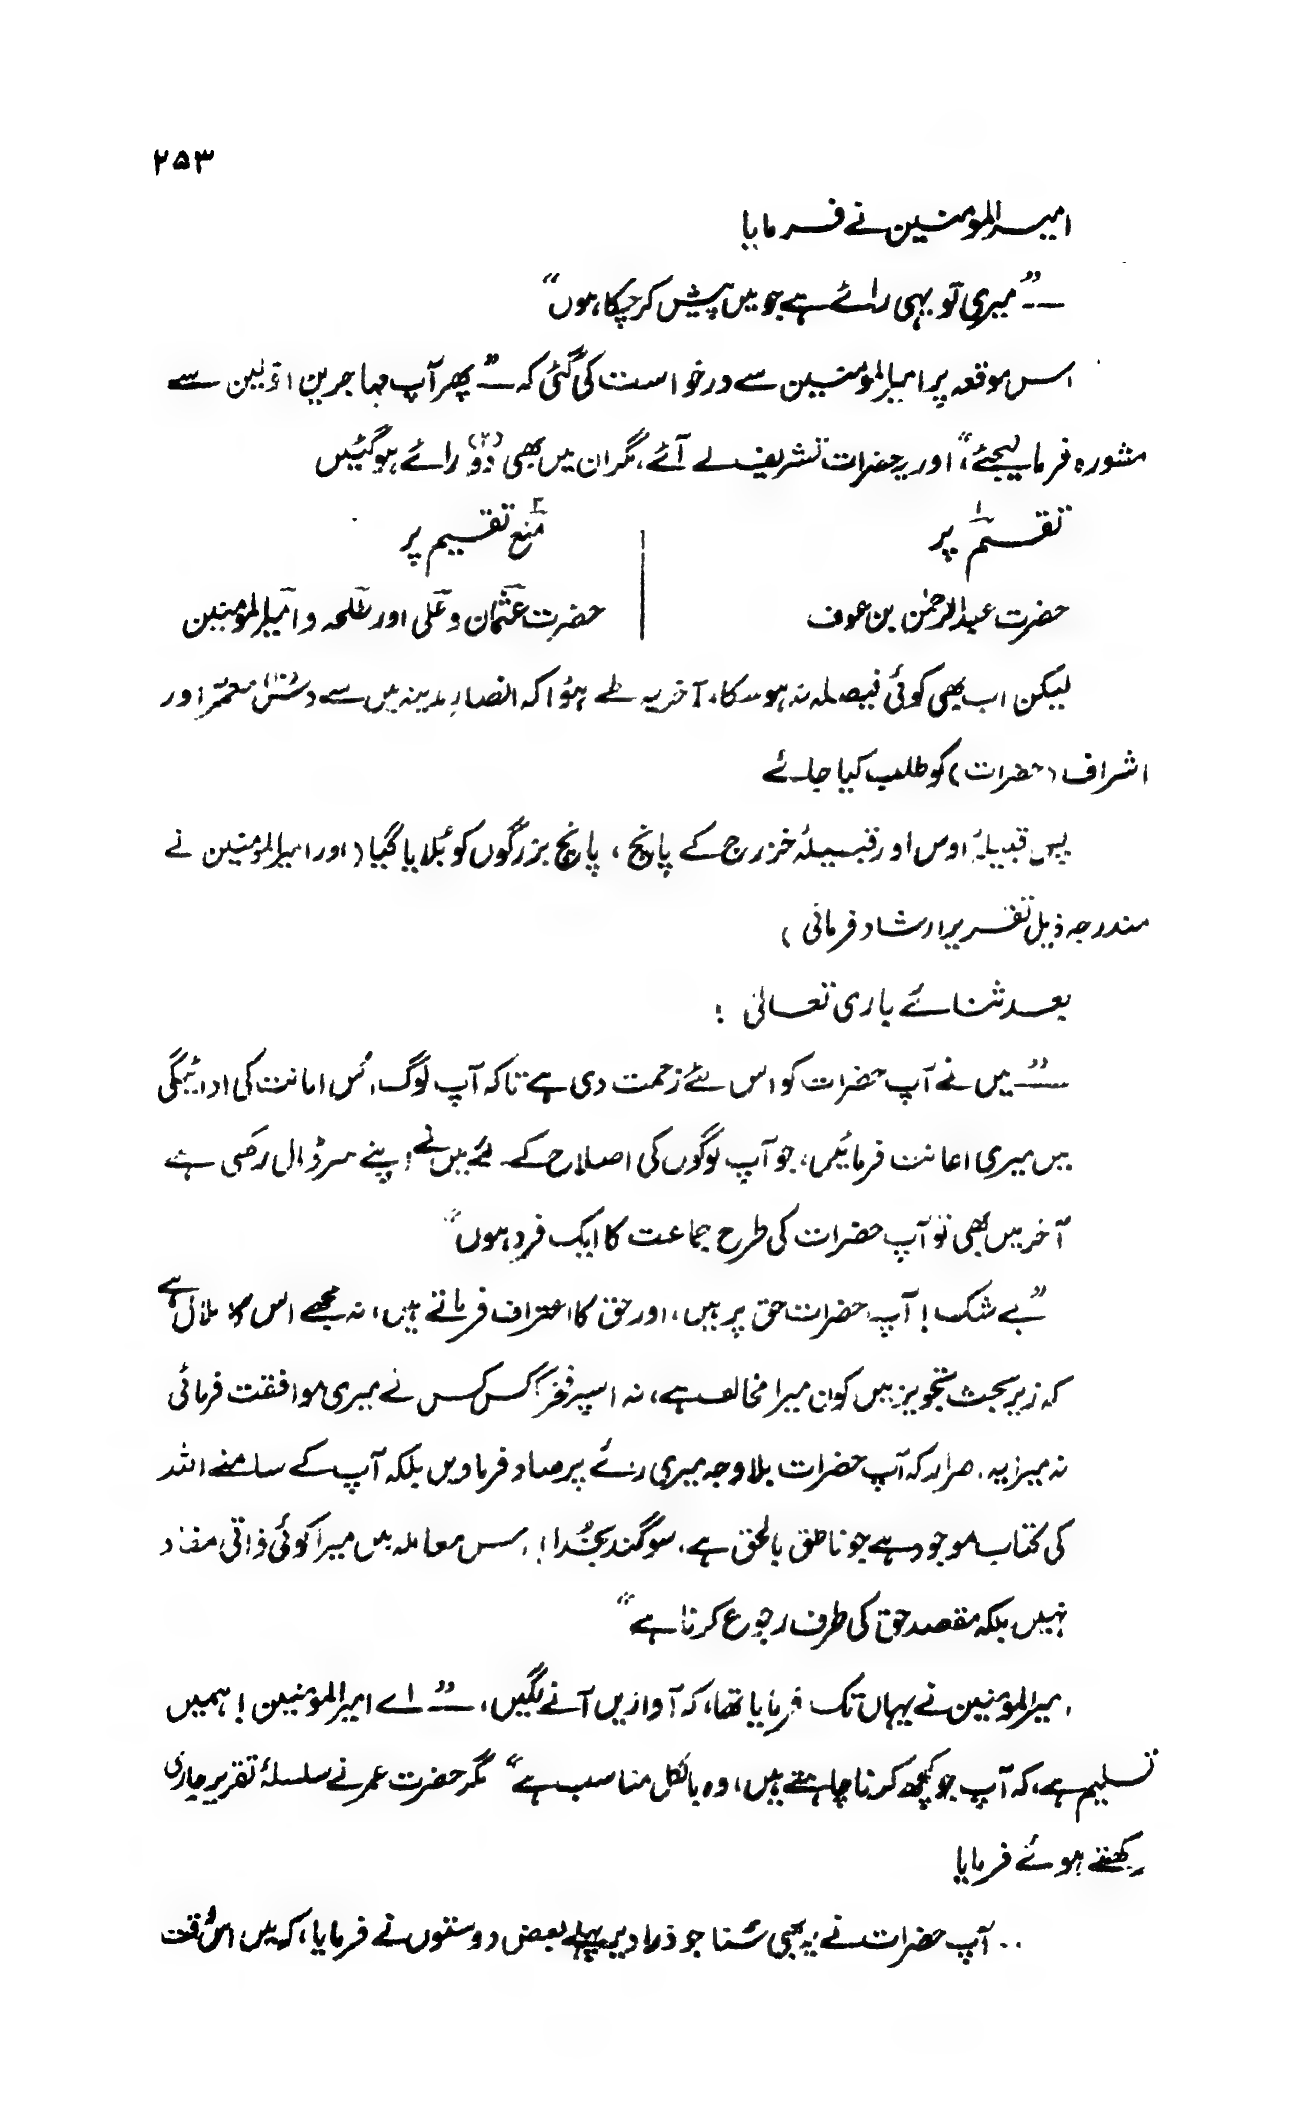 ۲۵۳
امیرالمومنین نے فرمایا
—"میری تو یہی رائے ہے جو میں پیش کر چکا ہوں"
اس موقعہ پر امیرالمومنین سے درخواست کی گئی کہ —"پھر آپ مہاجرین اوّلین سے
مشورہ فرما لیجئے"، اور یہ حضرات تشریف لے آئے، مگر ان میں بھی دو (۲) رائے ہو گئیں
تقسیم پر
منع تقسیم پر
حضرت عبدالرحمٰن بن عوف
حضرت عثمان و علی اور طلحہ و امیرالمومنین
لیکن اب بھی کوئی فیصلہ نہ ہو سکا، آخر یہ طے ہؤا کہ انصار مدینہ میں سے دس معمّر اور
اشراف (حضرات) کو طلب کیا جائے
پس قبیلہ اوس اور قبیلۂ خزرج کے پانچ، پانچ بزرگوں کو بُلایا گیا (اور امیرالمومنین نے
مندرجہ ذیل تقریر ارشاد فرمائی)
بعد ثنائے باری تعالیٰ :
—"میں نے آپ حضرات کو اس لئے زحمت دی ہے تاکہ آپ لوگ اُس امانت کی ادائیگی
میں میری اعانت فرمائیں، جو آپ لوگوں کی اصلاح کے لئے میں نے اپنے سر ڈال رکھی ہے
آخر میں بھی تو آپ حضرات کی طرح جماعت کا ایک فرد ہوں"
"بے شک! آپ حضرات حق پر ہیں، اور حق کا اعتراف فرماتے ہیں، نہ مجھے اس کا ملال ہے
کہ زیر بحث تجویز میں کون میرا مخالف ہے، نہ اسپر فخر کہ کس کس نے میری موافقت فرمائی
نہ میرا یہ اصرار کہ آپ حضرات بلا وجہ میری رائے پر صاد فرماویں بلکہ آپ کے سامنے اللہ
کی کتاب موجود ہے جو ناطق بالحق ہے، سوگند بخُدا! اس معاملہ میں میرا کوئی ذاتی مفاد
نہیں بلکہ مقصد حق کی طرف رجوع کرنا ہے"
امیرالمومنین نے یہاں تک فرمایا تھا، کہ آوازیں آنے لگیں، —"اے امیرالمومنین! ہمیں
تسلیم ہے، کہ آپ جو کچھ کرنا چاہتے ہیں، وہ بالکل مناسب ہے" مگر حضرت عمر نے سلسلۂ تقریر جاری
رکھتے ہوئے فرمایا
.. آپ حضرات نے یہ بھی سُنا جو ذرا دیر پہلے بعض دوستوں نے فرمایا، کہ میں اس وقت